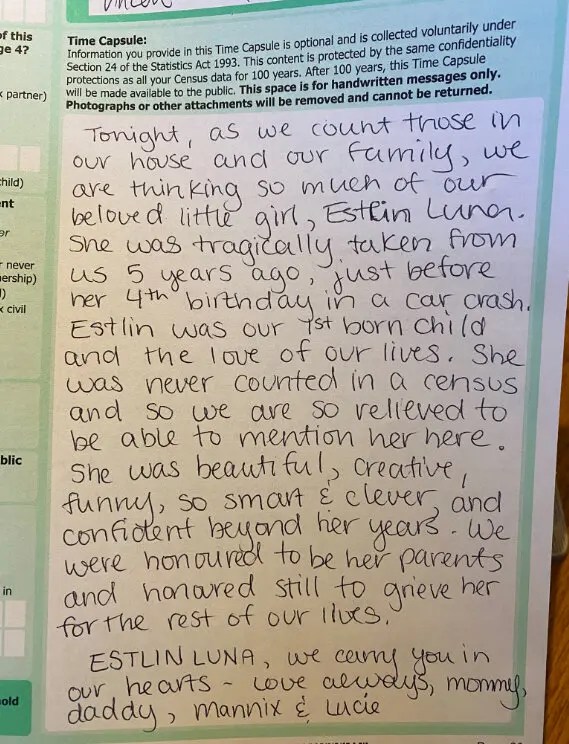 of this
ge 4?
x partner)
hild)
nt
er
r never
ership)
)
x civil
blic
in
old
Time Capsule:
Information you provide in this Time Capsule is optional and is collected voluntarily under
Section 24 of the Statistics Act 1993. This content is protected by the same confidentiality
protections as all your Census data for 100 years. After 100 years, this Time Capsule
will be made available to the public. This space is for handwritten messages only.
Photographs or other attachments will be removed and cannot be returned.
Tonight, as we count those in
our house and our family, we
are thinking so much of our
beloved little girl, Estlin Luna.
She was tragically taken from
us 5 years ago, just before
her 4th birthday in a car crash.
Estlin was our 1st born child
and the love of our lives. She
was never counted in a census
and so we are so relieved to
be able to mention her here.
She was beautiful, creative,
funny, so smart & clever, and
confident beyond her years. We
were honoured to be her parents
and honoured still to grieve her
for the rest of our lives.
ESTLIN LUNA, we carry you in
our hearts - Love always, mommy,
daddy, Mannix & Lucie